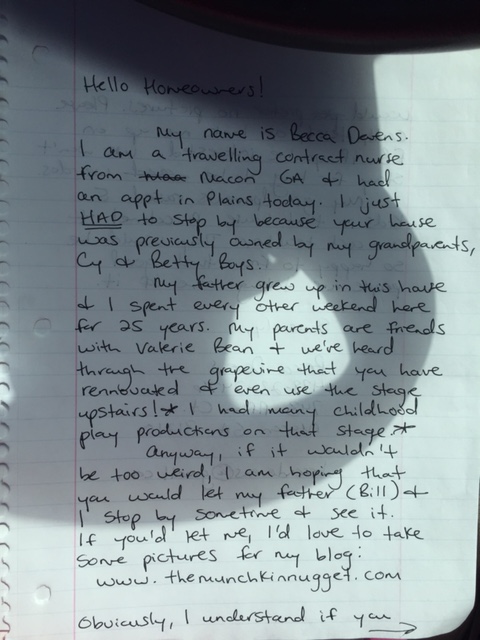 Hello Homeowners!
My name is Becca Devens.
I am a travelling contract nurse
from Macon GA & had
an appt in Plains today. I just
HAD to stop by because your house
was previously owned by my grandparents,
Cy & Betty Boys.
My father grew up in this house
& I spent every other weekend here
for 25 years. My parents are friends
with Valerie Bean & we've heard
through the grapevine that you have
rennovated & even use the stage
upstairs!* I had many childhood
play productions on that stage.*
Anyway, if it wouldn't
be too weird, I am hoping that
you would let my father (Bill) &
I stop by sometime & see it.
If you'd let me, I'd love to take
some pictures for my blog:
www.themunchkinnugget.com
Obviously, I understand if you →